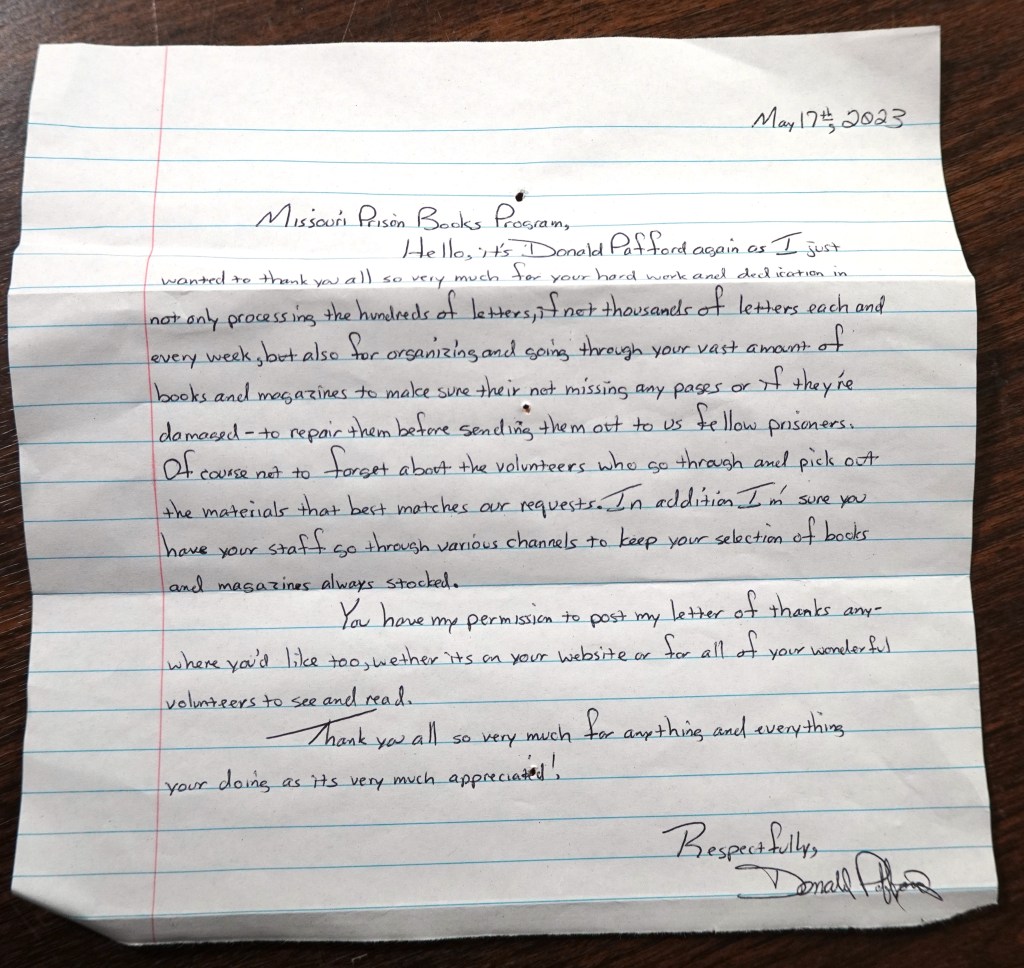 May 17th, 2023
Missouri Prison Books Program,
Hello, it's Donald Pafford again as I just
wanted to thank you all so very much for your hard work and dedication in
not only processing the hundreds of letters, if not thousands of letters each and
every week, but also for organizing and going through your vast amount of
books and magazines to make sure their not missing any pages or if they're
damaged - to repair them before sending them out to us fellow prisoners.
Of course not to forget about the volunteers who go through and pick out
the materials that best matches our requests. In addition I'm sure you
have your staff go through various channels to keep your selection of books
and magazines always stocked.
You have my permission to post my letter of thanks any-
where you'd like too, wether its on your website or for all of your wonderful
volunteers to see and read.
Thank you all so very much for anything and everything
your doing as its very much appreciated!
Respectfully,
Donald Pafford